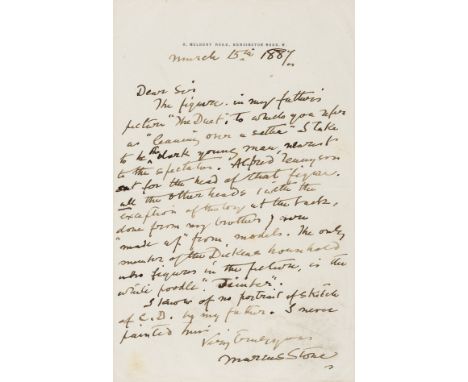 8, MELBURY ROAD, KENSINGTON ROAD, W.
March 15th 1887.
Dear Sir
The figure in my father's
picture "The Duet", to which you refer
as "leaning over a settee" I take
to be the dark young man, nearest
to the spectator. Alfred Tennyson
sat for the head of that figure.
All the other heads (with the
exception of the boy at the back,
done from my brother) were
"made up" from models. The only
member of the Dickens household
who figures in the picture, is the
white poodle
I know of no portrait or sketch
of C.D. by my father. I never
painted him.
Very truly yours
Marcus Stone